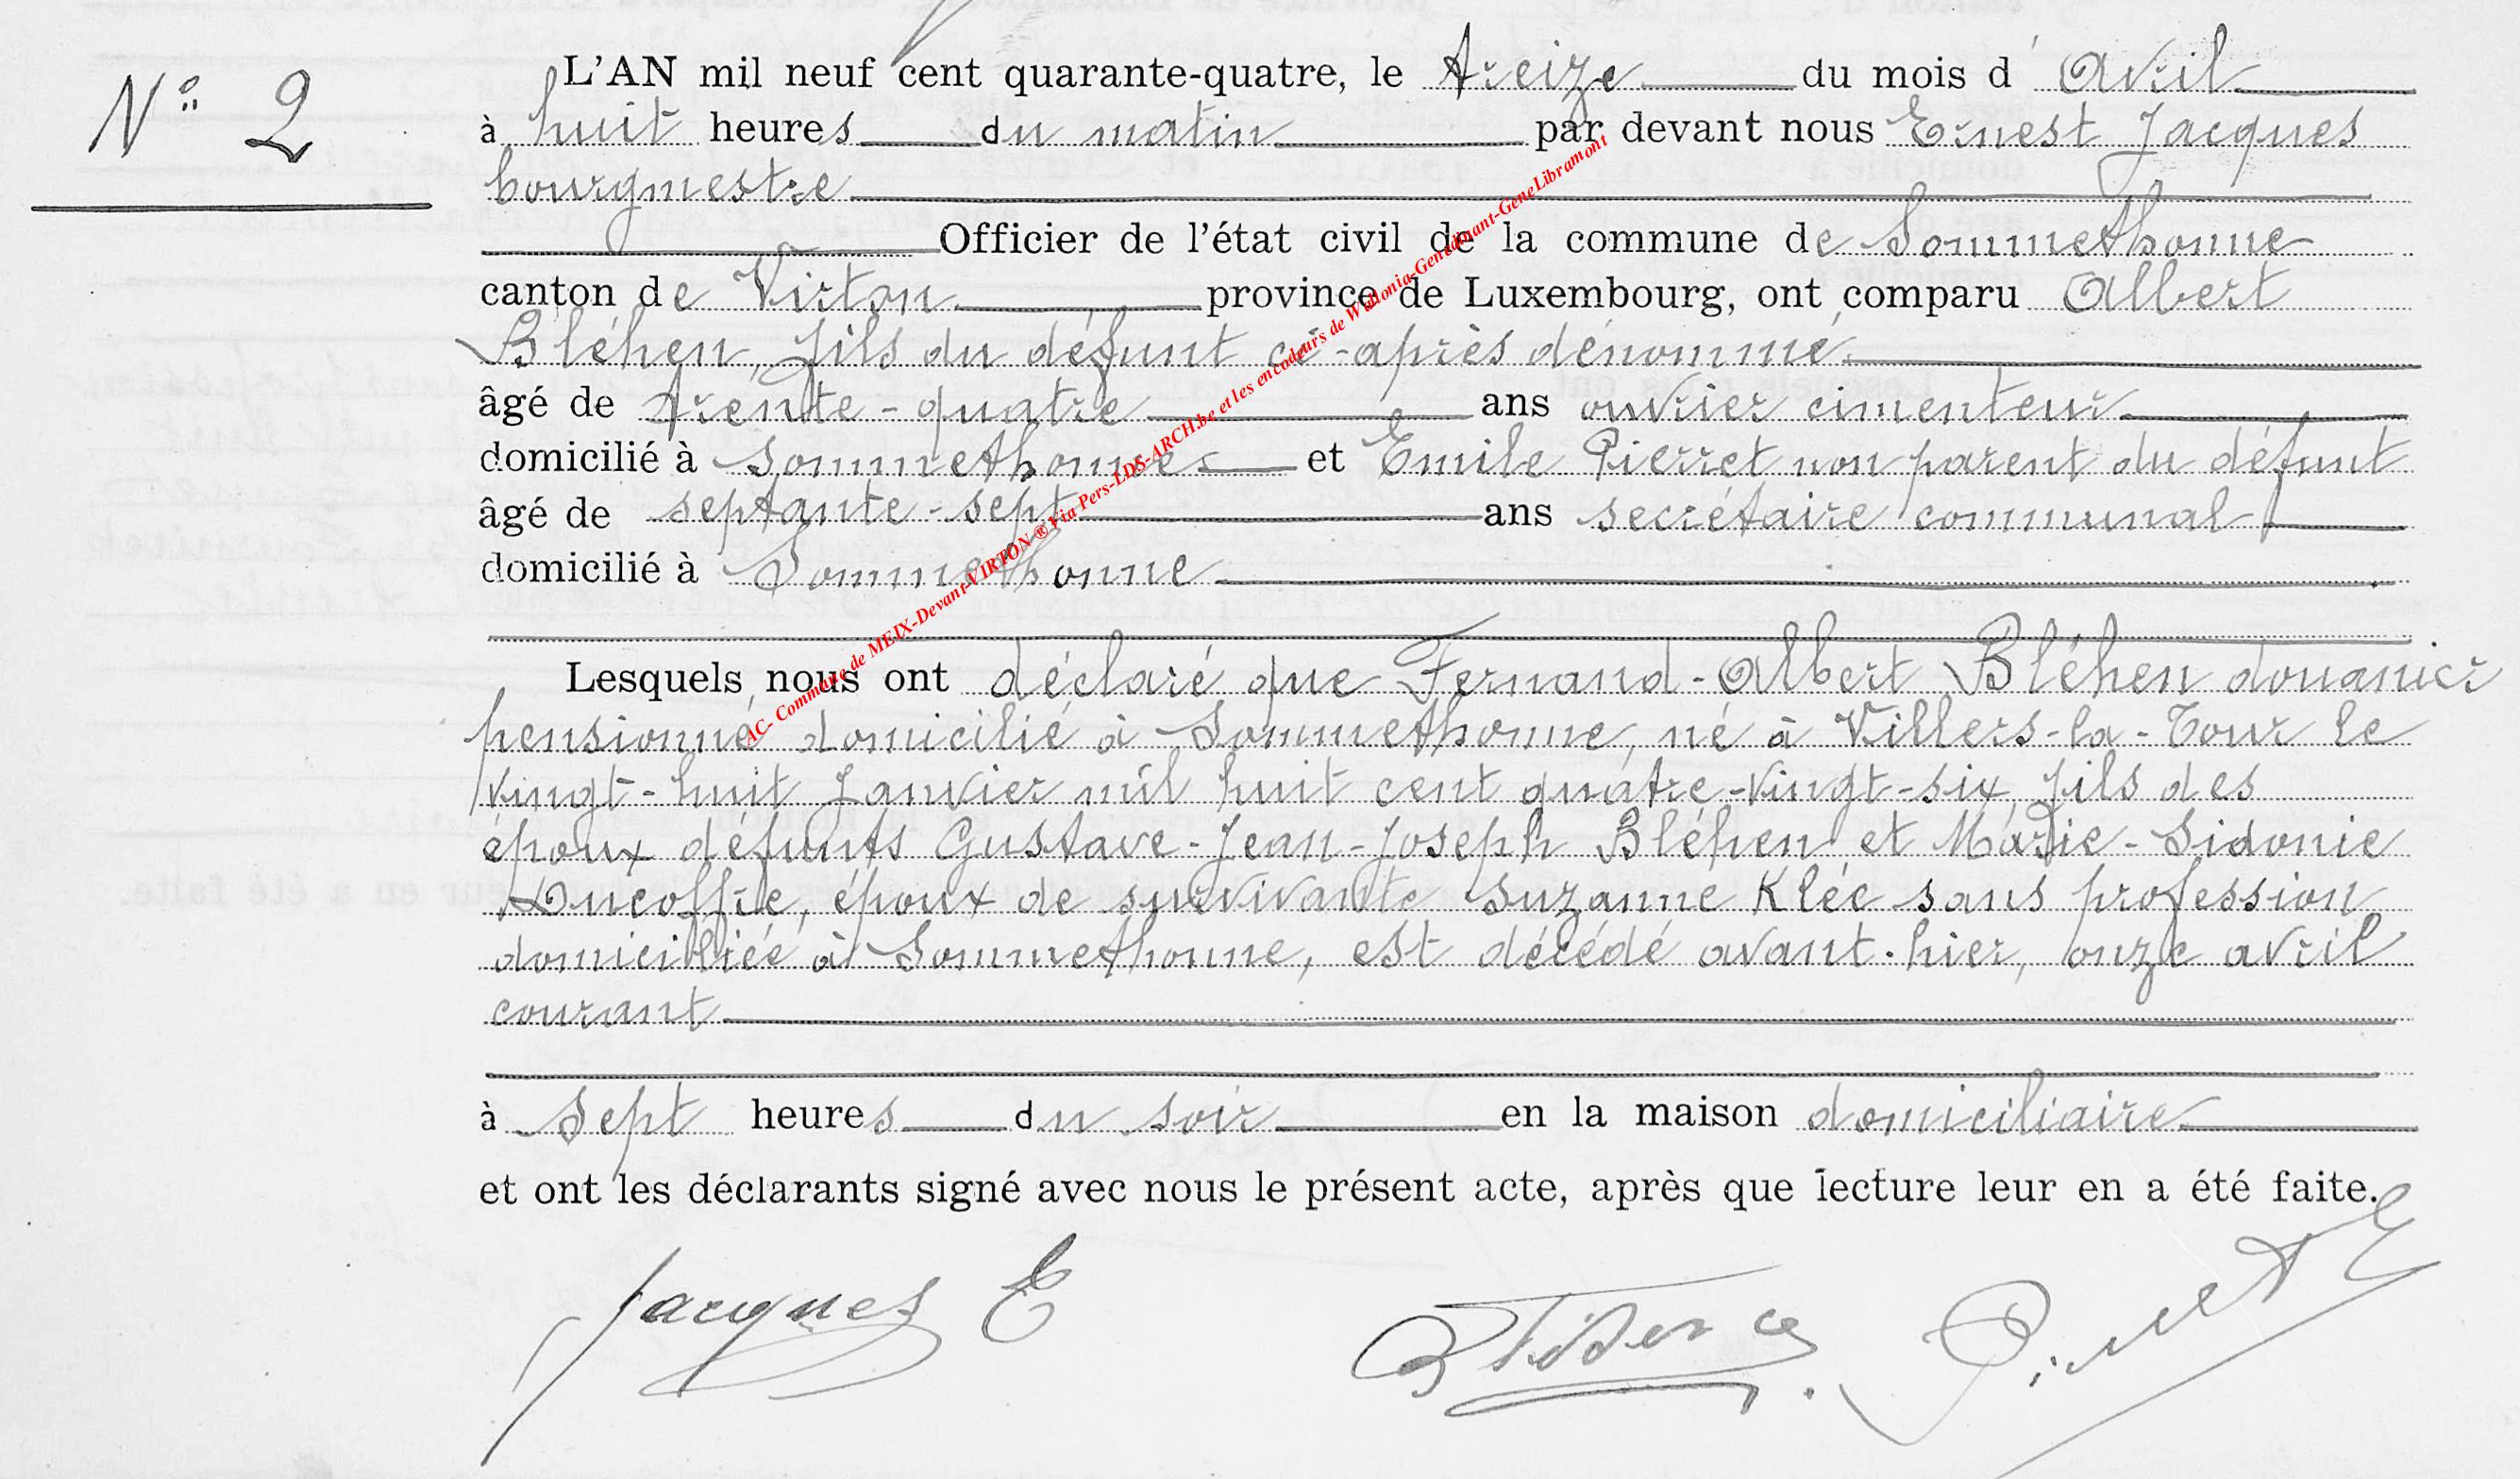 N° 2
L'AN mil neuf cent quarante-quatre, le treize du mois d' Avril
à huit heures du matin par devant nous Ernest Jacques
bourgmestre
Officier de l'état civil de la commune de Sommethonne
canton de Virton province de Luxembourg, ont comparu Albert
Bléhen, fils du défunt ci-après dénommé
âgé de trente-quatre ans ouvrier cimenteur
domicilié à Sommethonne et Emile Pierret non parent du défunt
âgé de septante-sept ans secrétaire communal
domicilié à Sommethonne
Lesquels nous ont déclaré que Fernand-Albert Bléhen douanier
pensionné domicilié à Sommethonne, né à Villers-la-Tour le
vingt-huit Janvier mil huit cent quatre-vingt-six, fils des
époux défunts Gustave-Jean-Joseph Bléhen et Marie-Sidonie
Ducoffre, époux de survivante Suzanne Klée sans profession
domiciliée à Sommethonne, est décédé avant-hier, onze avril
courant
à sept heures du soir en la maison domiciliaire
et ont les déclarants signé avec nous le présent acte, après que lecture leur en a été faite.
Jacques E
AC- Commune de MEIX-Devant-VIRTON ® Via Pers-LDS-ARCH.be et les encodeurs de Wallonia-GenDinant-GeneLibramont